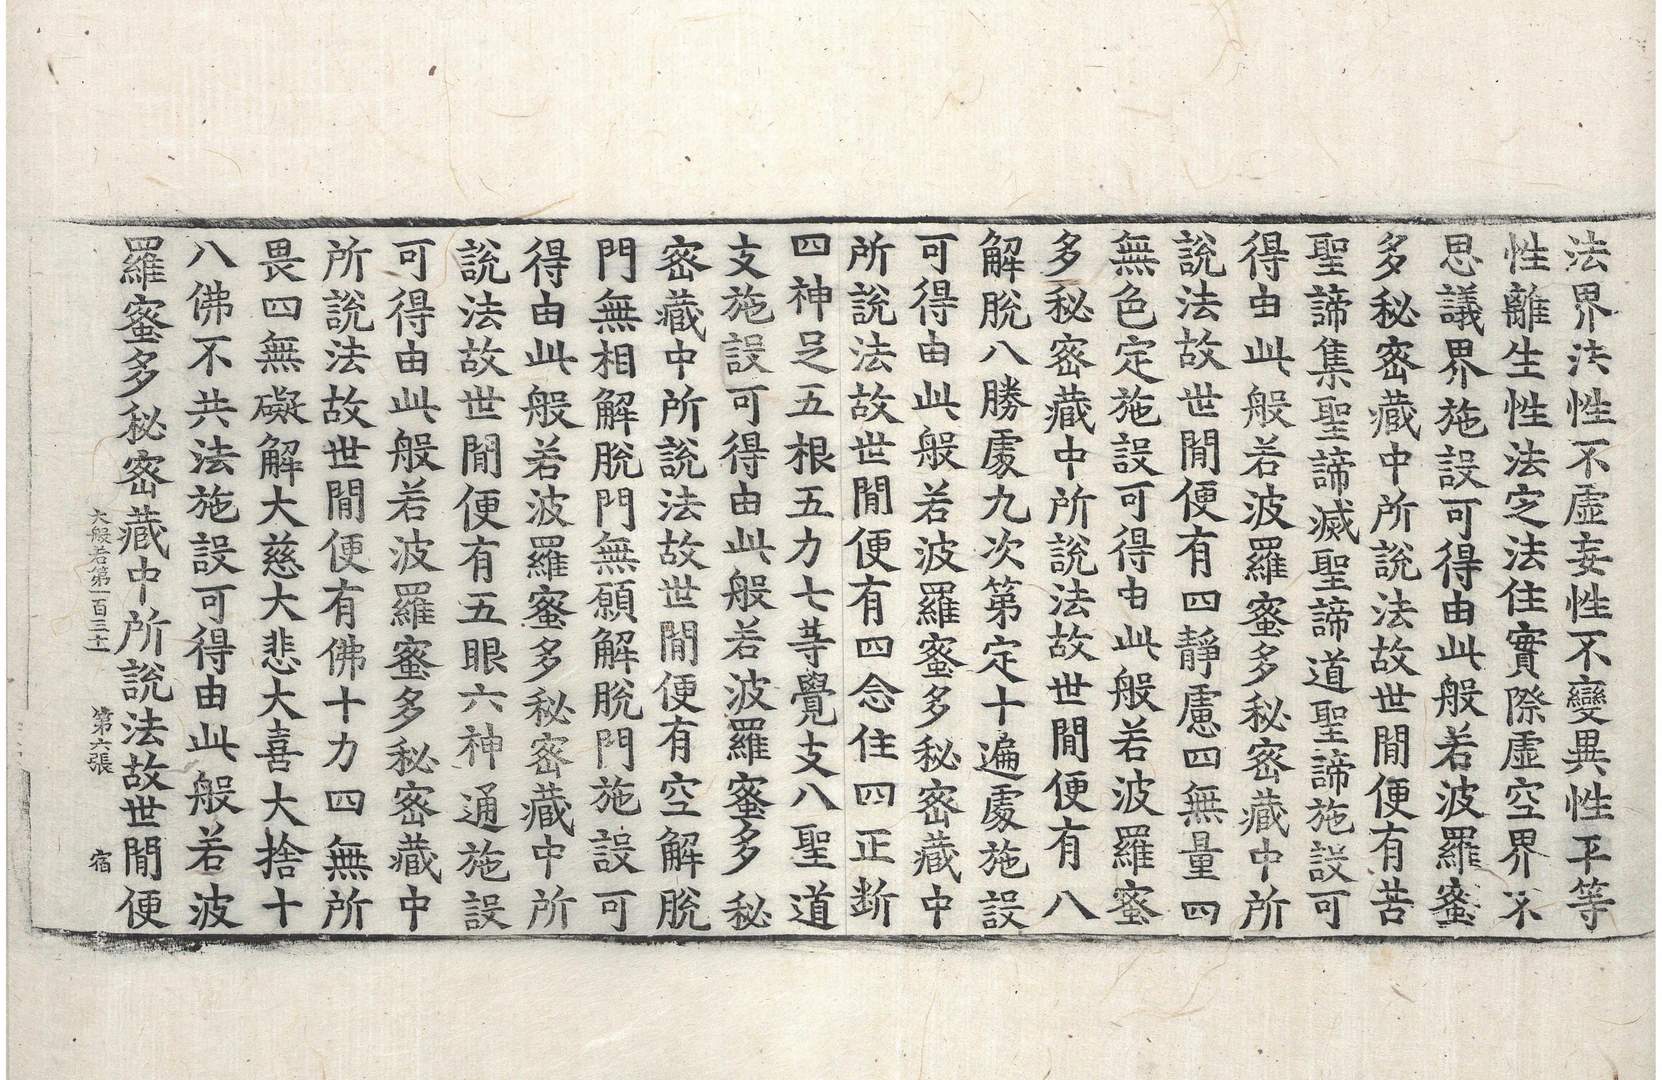 法界法性不虛妄性不變異性平等
性離生性法定法住實際虛空界不
思議界施設可得由此般若波羅蜜
多秘密藏中所說法故世間便有苦
聖諦集聖諦滅聖諦道聖諦施設可
得由此般若波羅蜜多秘密藏中所
說法故世間便有四靜慮四無量四
無色定施設可得由此般若波羅蜜
多秘密藏中所說法故世間便有八
解脫八勝處九次第定十遍處施設
可得由此般若波羅蜜多秘密藏中
所說法故世間便有四念住四正斷
四神足五根五力七等覺支八聖道
支施設可得由此般若波羅蜜多秘
密藏中所說法故世間便有空解脫
門無相解脫門無願解脫門施設可
得由此般若波羅蜜多秘密藏中所
說法故世間便有五眼六神通施設
可得由此般若波羅蜜多秘密藏中
所說法故世間便有佛十力四無所
畏四無礙解大慈大悲大喜大捨十
八佛不共法施設可得由此般若波
羅蜜多秘密藏中所說法故世間便
大般若第一百三 第六張 宿